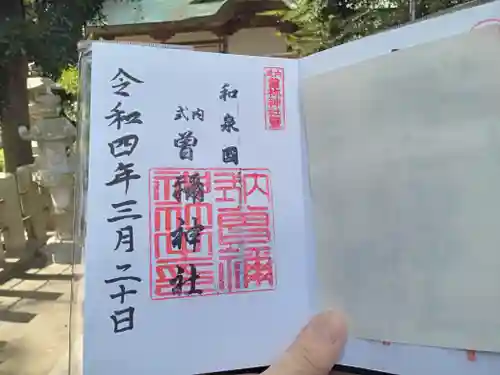 和泉国
式内
曽禰神社
令和四年三月二十日